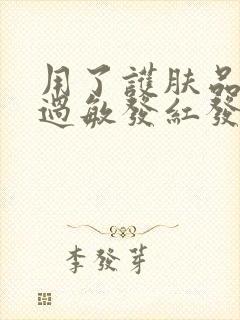 用了護肤品
過敏發紅發
李發芽